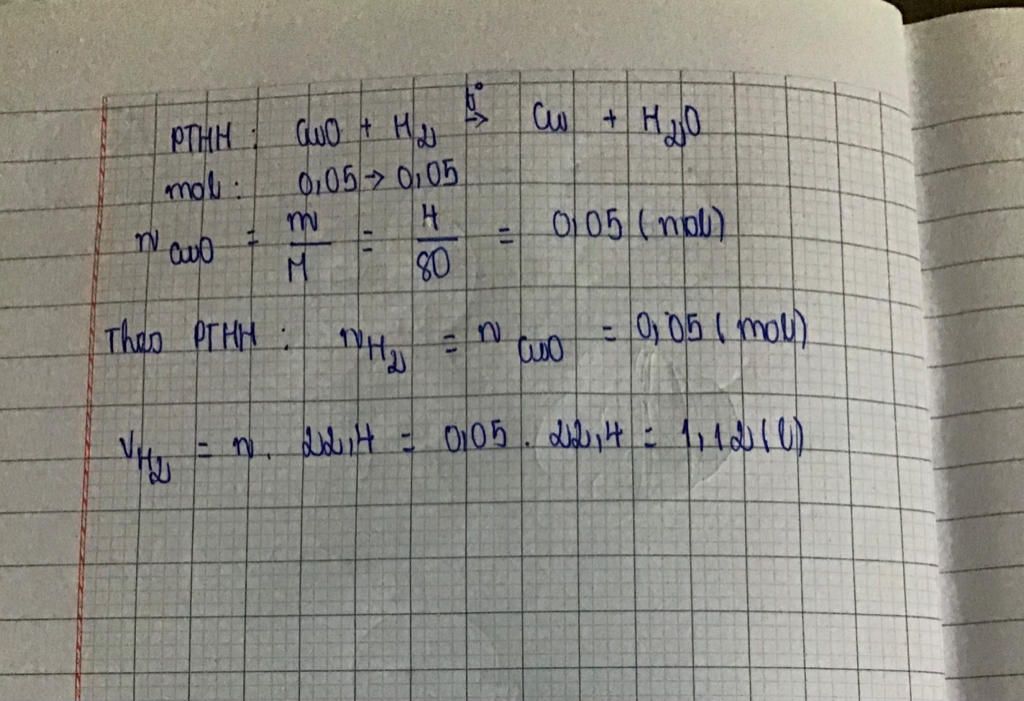 PTHH : CuO + H₂ t°→ Cu + H₂O
mol : 0,05 → 0,05
n CuO = m/M = 4/80 = 0,05 (mol)
Theo PTHH : n H₂ = n CuO = 0,05 (mol)
V H₂ = n . 22,4 = 0,05 . 22,4 = 1,12 (l)